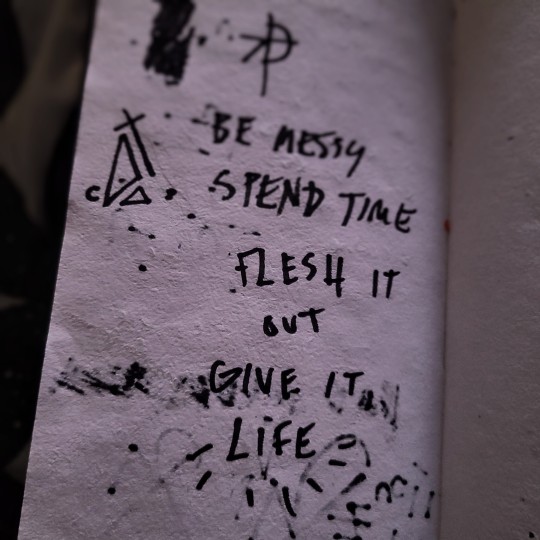 BE MESSY
SPEND TIME
FLESH IT
OUT
GIVE IT
LIFE